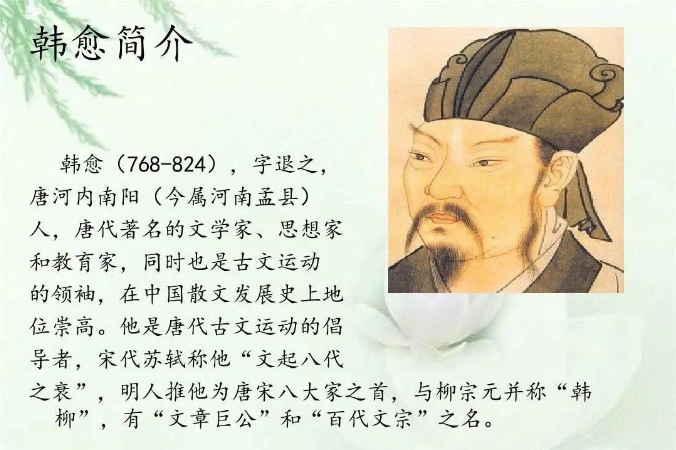 韩愈简介
韩愈（768-824），字退之，
唐河内南阳（今属河南孟县）
人，唐代著名的文学家、思想家
和教育家，同时也是古文运动
的领袖，在中国散文发展史上地
位崇高。他是唐代古文运动的倡
导者，宋代苏轼称他“文起八代
之衰”，明人推他为唐宋八大家之首，与柳宗元并称“韩
柳”，有“文章巨公”和“百代文宗”之名。